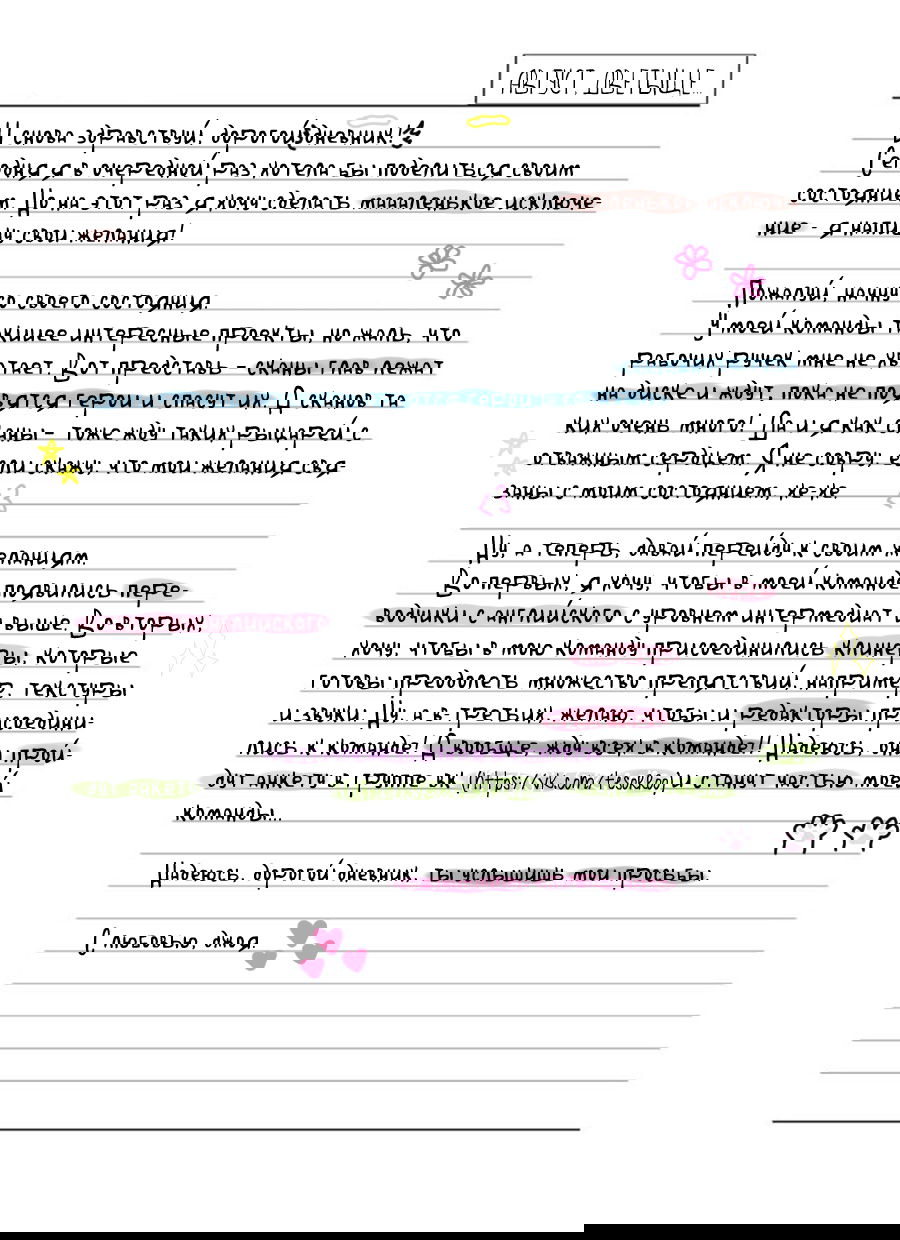 АВГУСТ, ДВЕ ТЫЩЕ...
И снова здравствуй, дорогой дневник!
Сегодня я в очередной раз хотела бы поделиться своим
состоянием. Но на этот раз я хочу сделать мааленькое исключе-
ние - я напишу свои желания!
Пожалуй, начну со своего состояния.
У моей команды такиіее интересные проекты, но жаль, что
рабочих ручек мне не хватает. Вот представь - сканы глав лежат
на диске и ждут, пока не появятся герои и спасут их. Сканов та
ких очень много! Да и я как сканы - тоже жду таких рыцарей с
отважным сердцем. Я не совру, если скажу, что мои желания свя-
заны с моим состоянием, хе-хе.
Ну а теперь, давай перейду к своим желаниям.
Во первых, я хочу, чтобы в моей команде появились пере-
водчики с английского с уровнем интермедиат и выше. Во вторых,
хочу, чтобы в мою команду присоединились клинеры, которые
готовы преодолеть множество препятствий, например, текстуры
и звуки. Ну, а в третьих, желаю, чтобы и редакторы присоедини-
лись к команде! И вообще, жду всех в команде!! Надеюсь, они прой-
дут анкету в группе вк и станут частью моей
команды...
Надеюсь, дорогой дневник, ты услышишь мои просьбы.
С любовью,